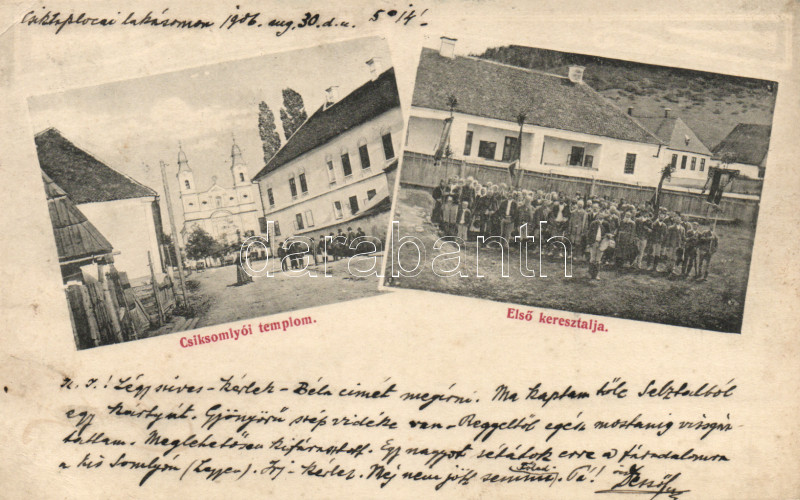 Csiktaplocai lakásomon 1906. aug. 30. d. u. 5 ó 14'
darabanth
Csiksomlyói templom.
Első keresztalja.
Légy szives - kérlek - Béla cimét megirni. Ma kaptam tőle Selztalból
egy kártyát. Gyönyörű szép vidéke van - Reggeltől egész mostanig vizsgáz-
tattam. Meglehetősen kifárasztott. Egy nagyot sétálok erre a fáradalomra
a kis Somlyón Irj - kérlek. Még nem jött semmi. Pá!
Dezső